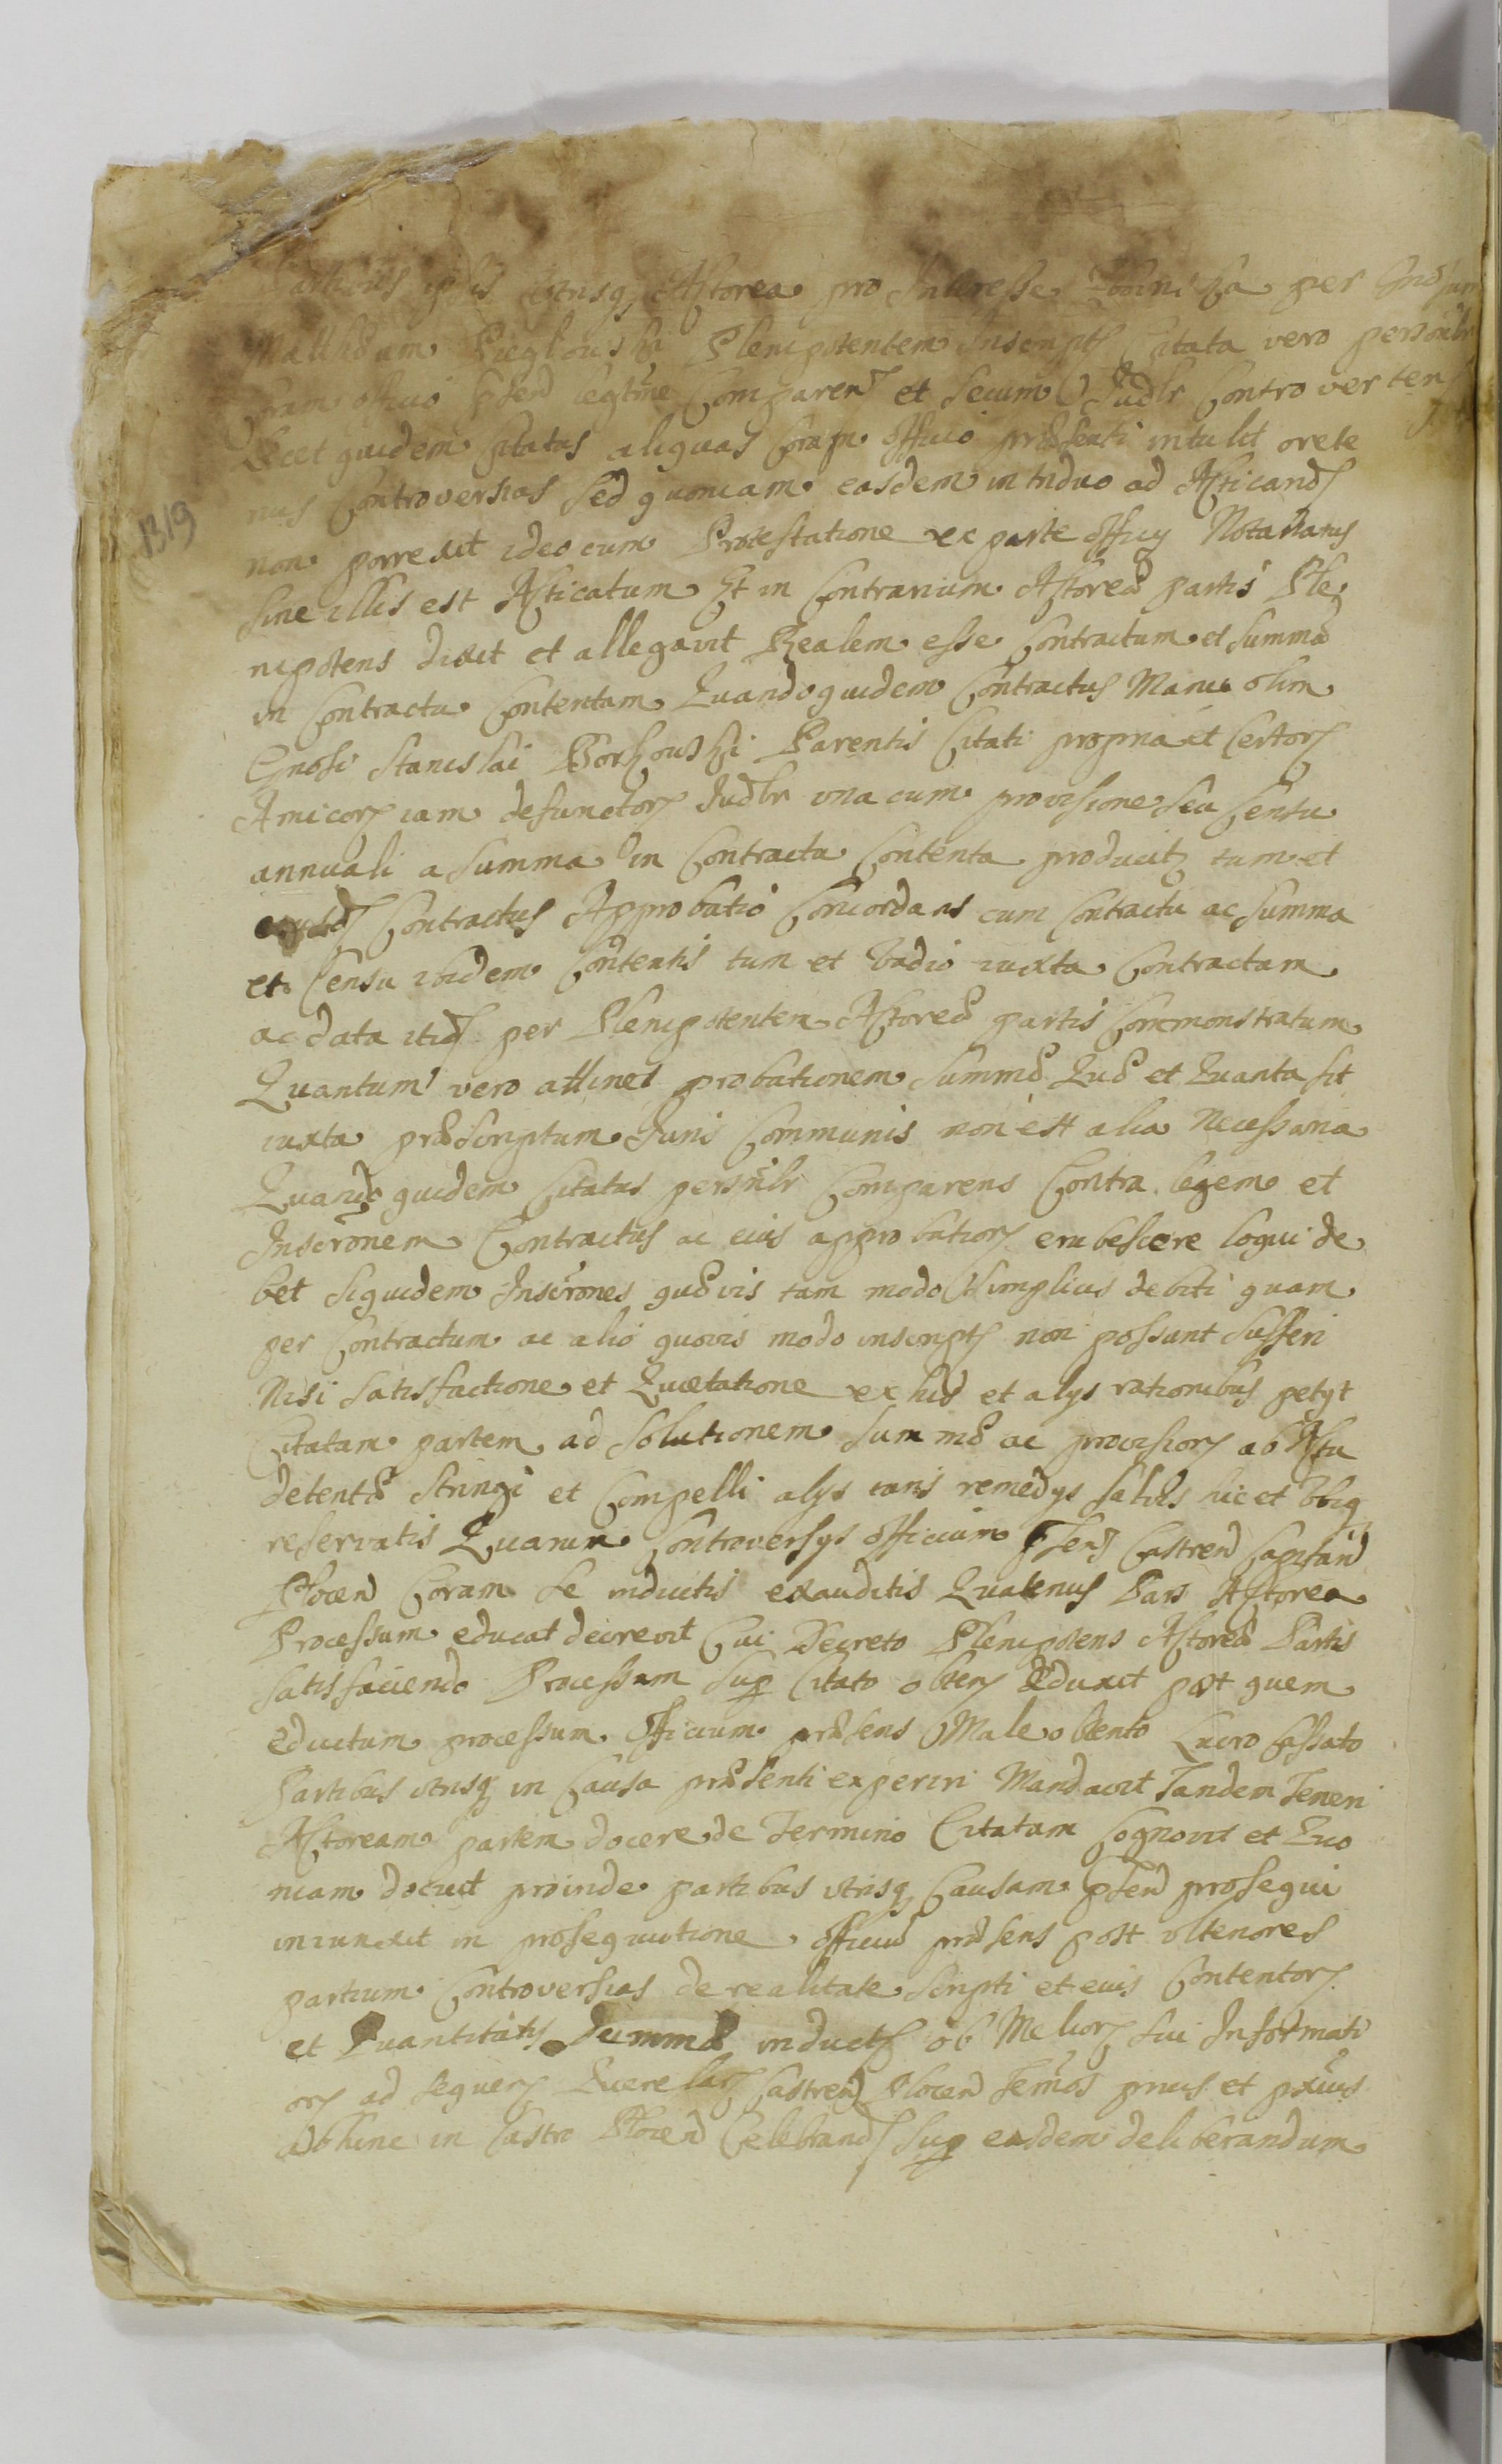 Partibus ipsis utrisq Actorea pro Interesse per Gnosum
Matthæum Plenipotentem Inscript Citata vero personlr
Coram officio Pnti legtime Comparen et secum Judlr Controverten
Licet quidem Citatus aliquas Coram officio præsenti intulit orete
nus Controversias sed quoniam easdem in triduo ad Acticand
non porrexit ideo cum Protestatione ex parte Officy Notariatus
sine illis est Acticatum Et in Contrarium Actoreæ partis Ple
nipotens dixit et allegavit Realem esse Contractum et Summā
in Contractu Contentam Quandoquidem Contractus Manu olim
Gnosi Stanislai Borkowski Parentis Citati propria et Certor
Amicor iam defunctor Judlr una cum provisione seu Censu
annuali a Summa in Contractu Contenta producitz tum et
eiusd Contractus Approbatio Concordans cum Contractu ac Summa
et Censu ibidem Contentis tum et Vadio iuxta Contractum
ac data itid per Plenipotentem Actoreæ partis Commonstratum
Quantum vero attinet probationem Summæ Quæ et Quanta sit
iuxta præscriptum Juris Communis non est alia Necessaria
Quando quidem Citatus persnlr Comparens Contra legem et
Inscronem Contractus ac eius approbation erubescere loqui de
bet siquidem Inscrones quævis tam modo simplicis debiti quam
per Contractum ac alio quovis modo inscript non possunt sufferri
Nisi satisfactione et Quietatione ex his et alys rationibus petyt
Citatam partem ad Solutionem Summæ ac provision ab Actu
detentæ Stringi et Compelli alys iuris remedys salvis hic et Vbiq
reservatis Quarum Controversys officium Psens Castren Capitan
Plocen Coram se inductis exauditis Quatenus Pars Actorea
Processum educat decrevit Cui Decreto Plenipotens Actoreæ Partis
satisfaciendo Processum sup Citato obten Eduxit post quem
eductum processum Officium præsens Male obtento Lucro Cassato
Partibus utrisq in Causa præsenti experiri Mandavit Tandem Teneri
Actoream partem docere de Termino Citatam Cognovit et Quo
niam docuit proinde partibus utrisq Causam Psen prosequi
iniunxit in prosequutione officiu præsens post ulteriores
partium Controversias de realitate Scripti et eius Contentor
et Quantitatis Summæ induct ob Melior sui Informati
on ad sequen Querelar Castren Plocen Termos prius et pximus
abhinc in Castro Plocen Celebrand sup easdem deliberandum
1319